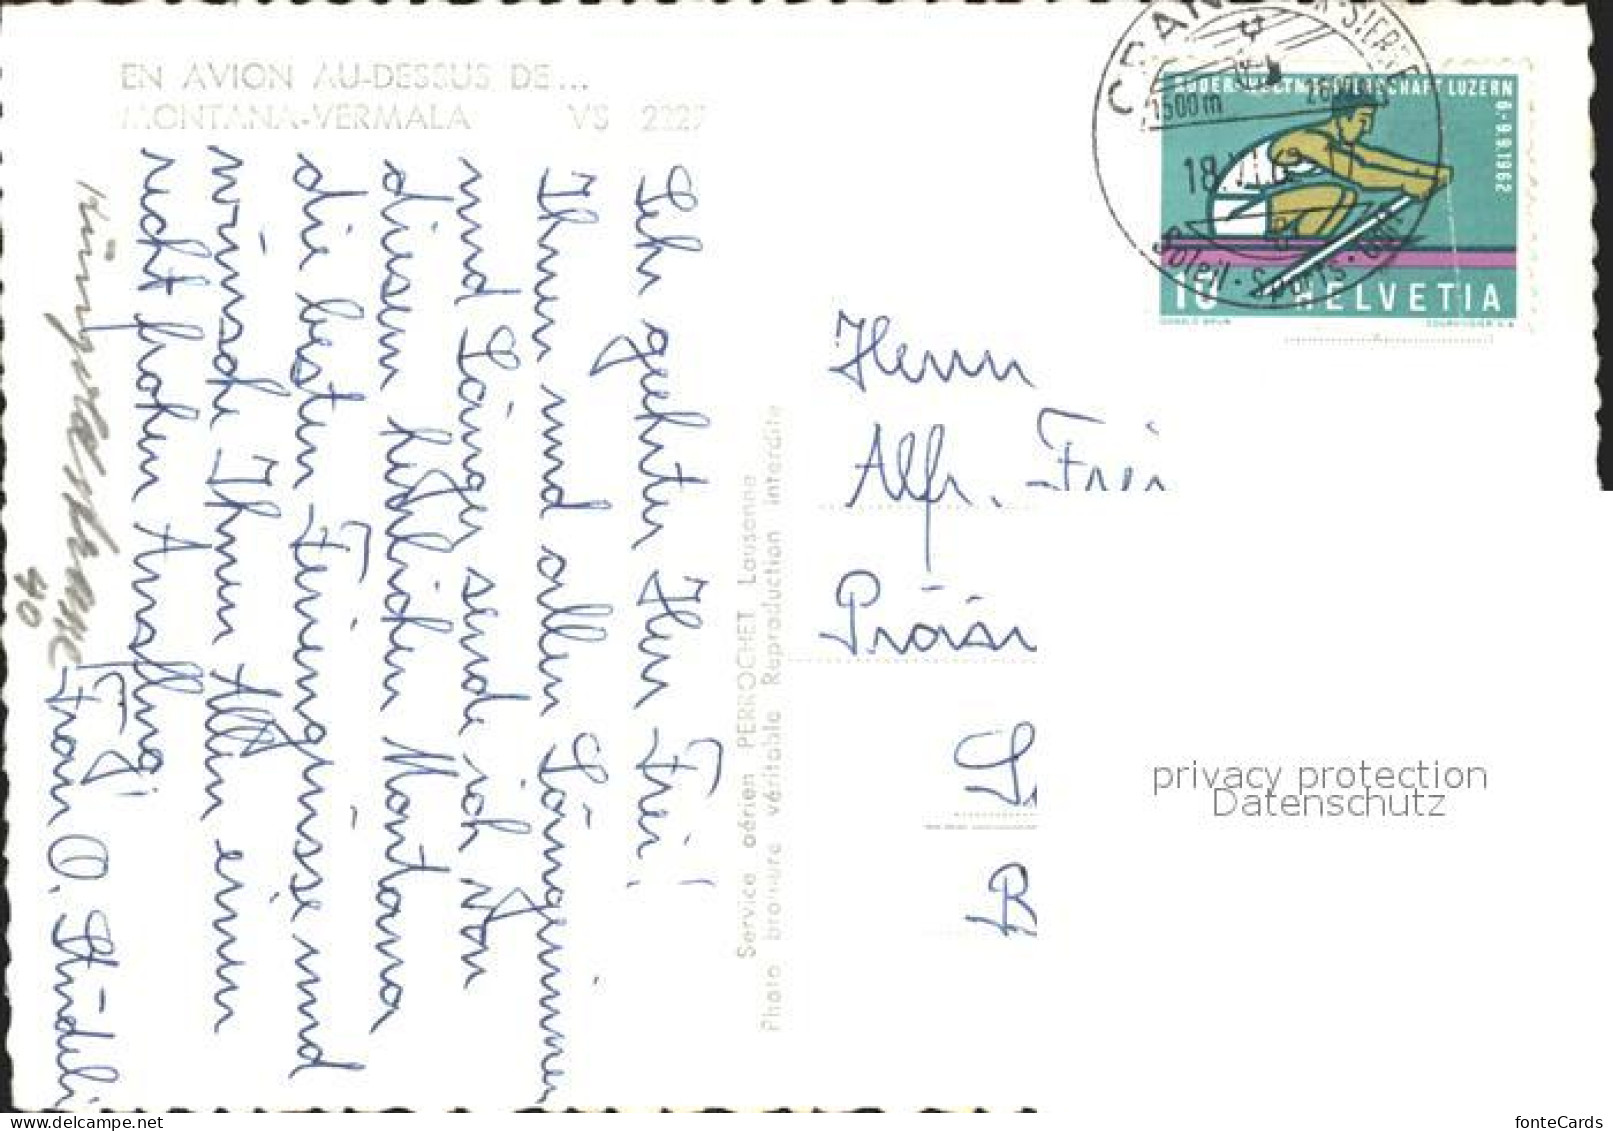 EN AVION AU-DESSUS DE...
MONTANA-VERMALA VS 2227
Sehr geehrter Herr Frei!
Ihnen und allen Sängerinnen
und Sänger sende ich von
diesem herrlichen Montana
die besten Feriengrüsse und
wünsche Ihnen Allen einen
recht frohen Ausflug!
Frau O. Stüdeli
40
Service aérien PERROCHET Lausanne
Photo bromure véritable Reproduction interdite
CRANS SUR-SIERRE
1500 m
18
Soleil - Sports - Golf
RUDERWELTMEISTERSCHAFT LUZERN
6.-9.9.1962
10 HELVETIA
DONALD BRUN COURVOISIER S.A.
Herrn
Alfr. Frei
Präsi
privacy protection
Datenschutz
fonteCards